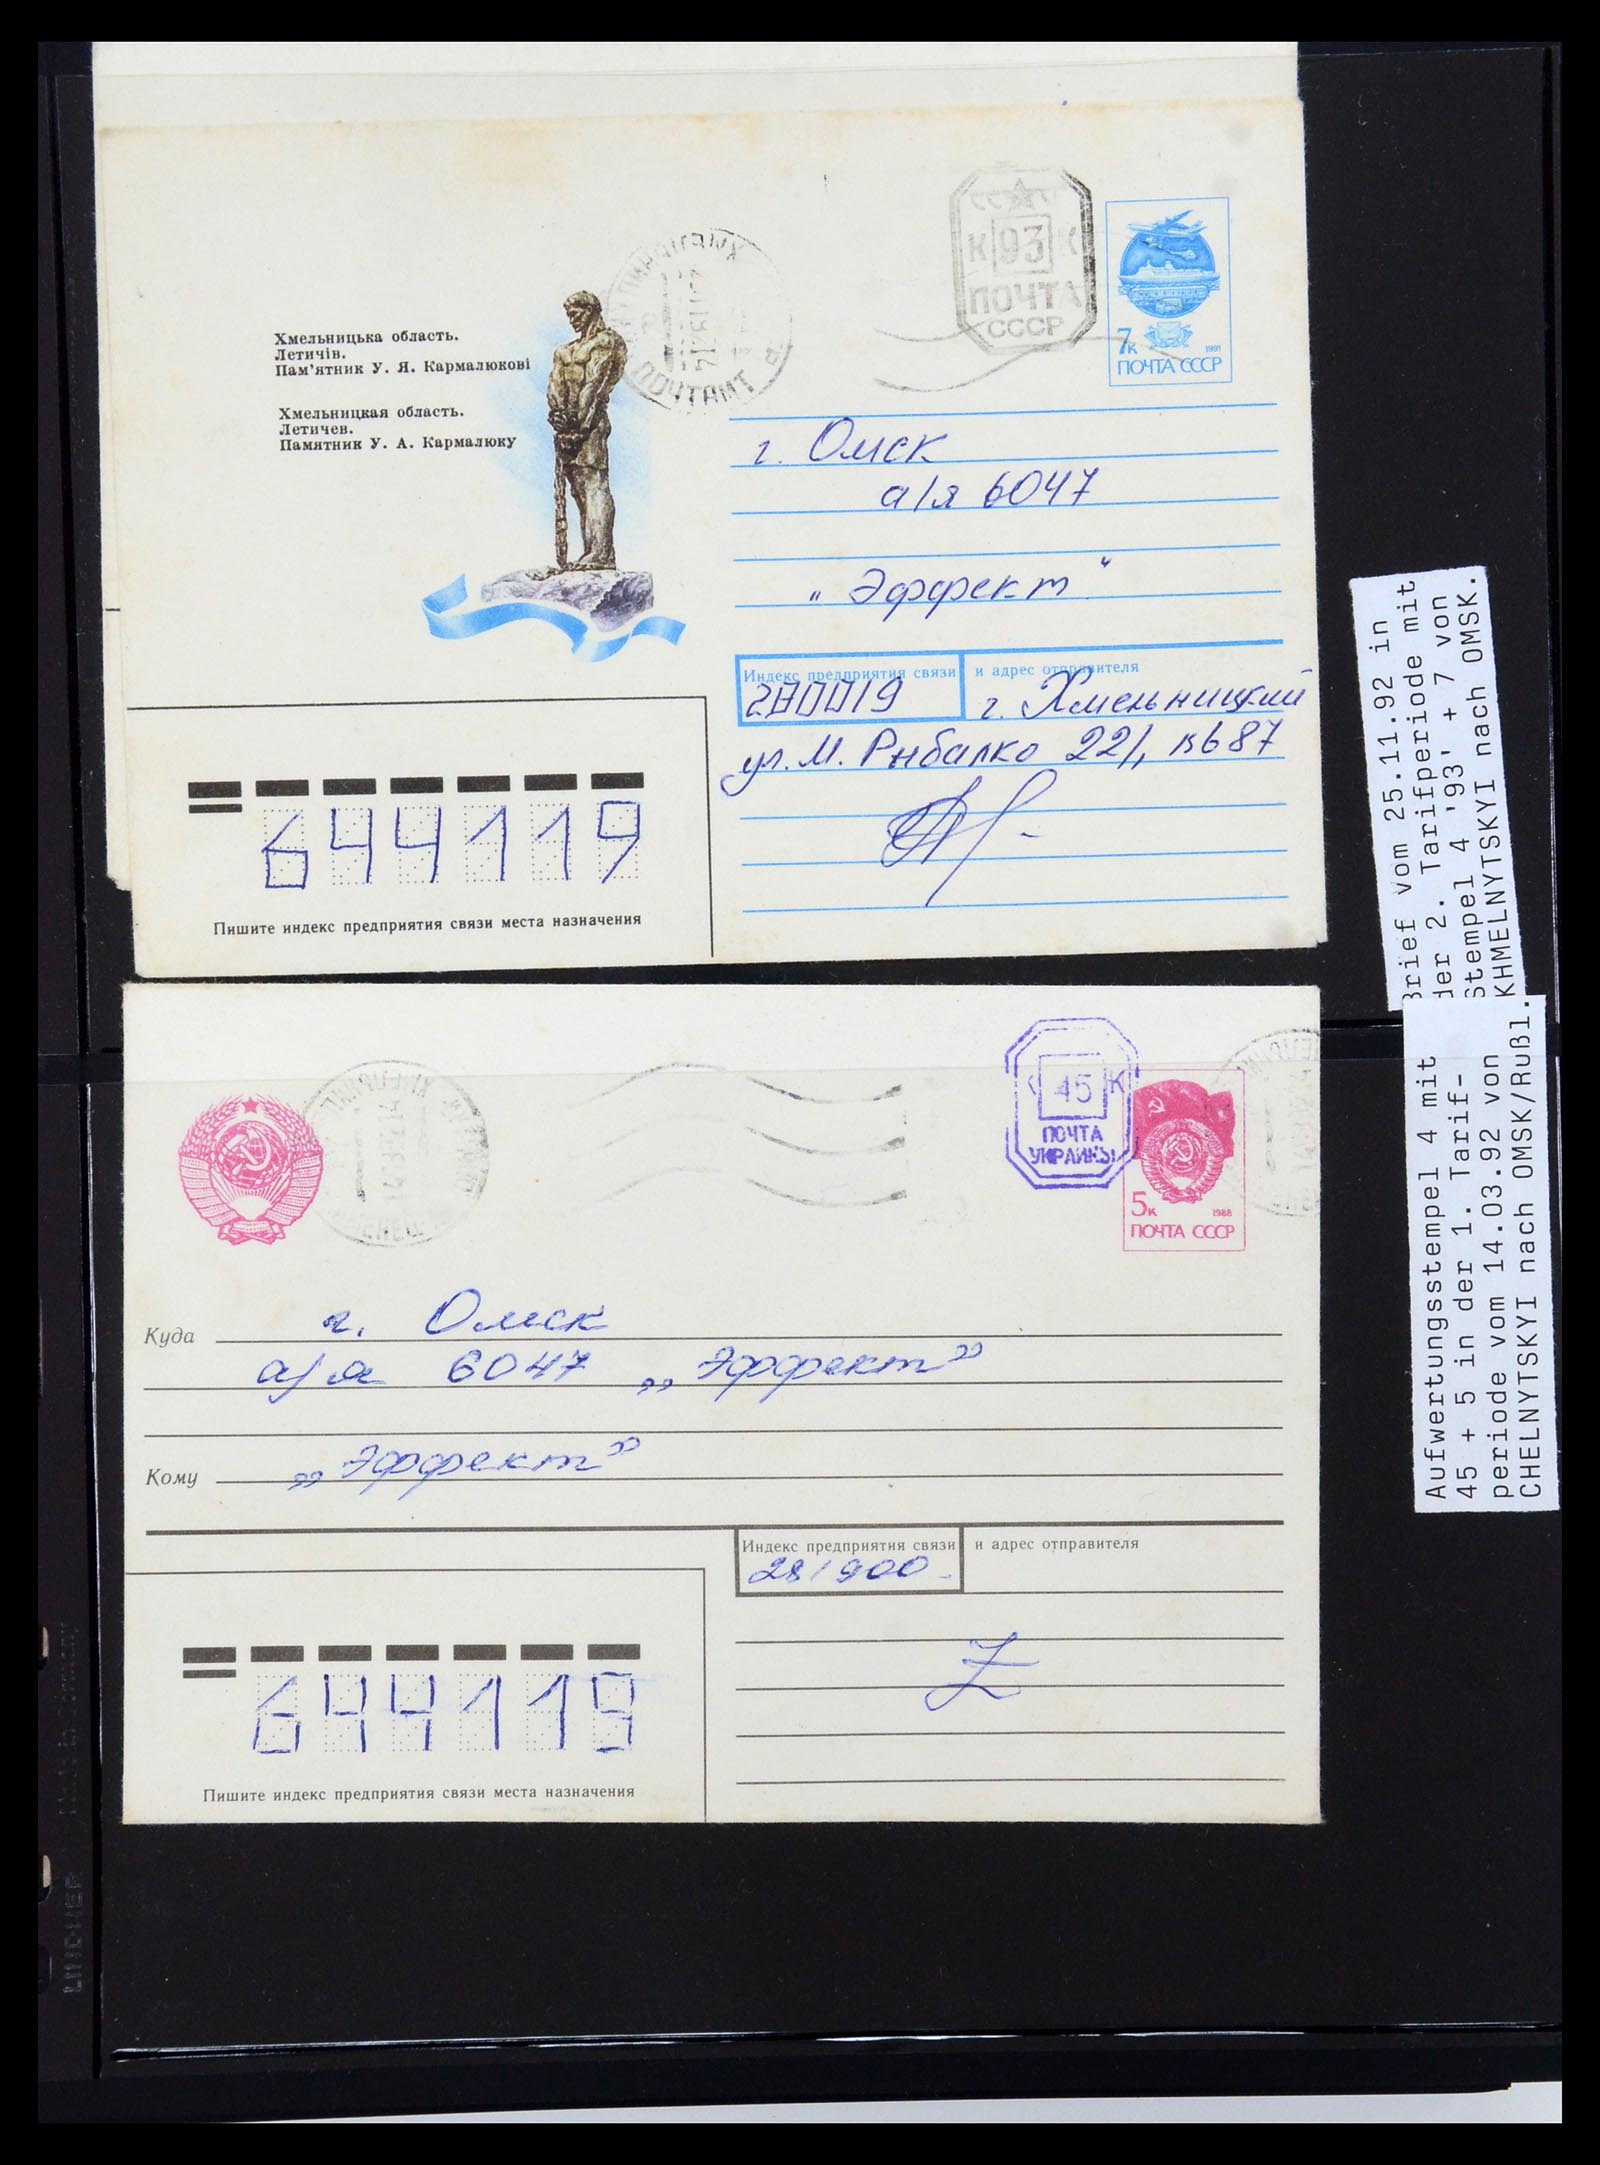 Хмельницька область.
Летичів.
Пам'ятник У. Я. Кармалюкові
Хмельницкая область.
Летичев.
Памятник У. А. Кармалюку
ПОЧТАМТ
К 93 К
ПОЧТА
СССР
7к 1991
ПОЧТА СССР
г. Омск
а/я 6047
„ Эффект "
Индекс предприятия связи и адрес отправителя
280019 г. Хмельницкий
ул. М. Рыбалко
644119
Пишите индекс предприятия связи места назначения
Brief vom 25.11.92 in
der 2. Tarifperiode mit
Stempel 4 '93' + 7 von
KHMELNYTSKYI nach OMSK.
45 К
ПОЧТА
УКРАИНЫ
5к 1988
ПОЧТА СССР
Куда г. Омск
а/я 6047 „Эффект”
Кому „Эффект”
Индекс предприятия связи и адрес отправителя
281900
644119
Пишите индекс предприятия связи места назначения
Aufwertungsstempel 4 mit
45 + 5 in der 1. Tarif-
periode vom 14.03.92 von
CHELNYTSKYI nach OMSK/Rußl.